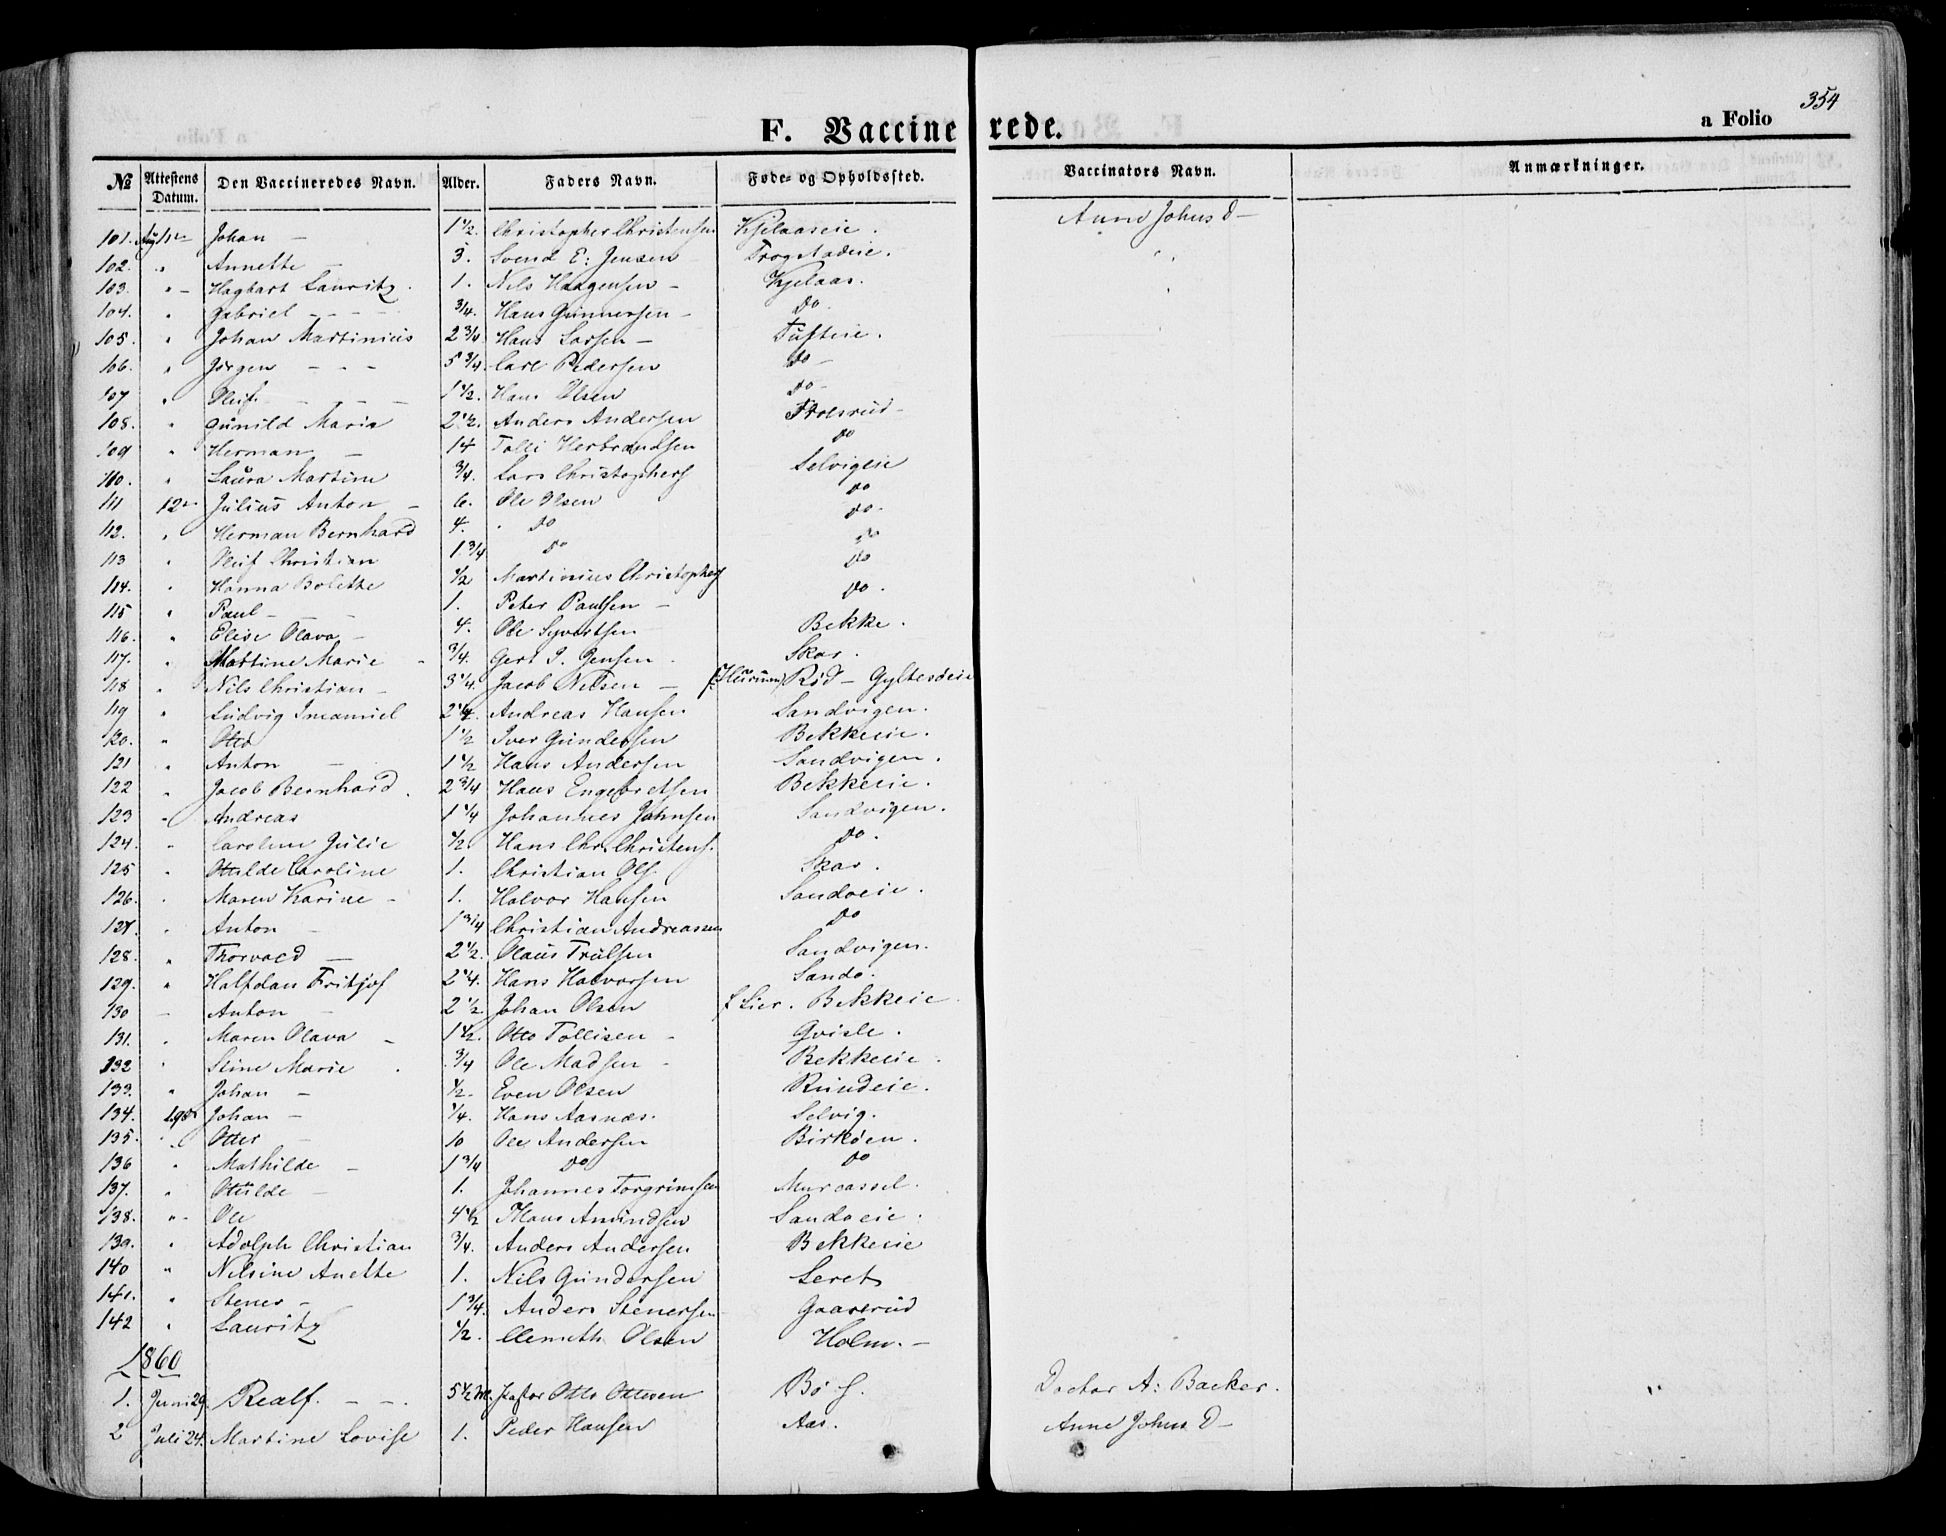 354
F. Vaccinerede.
a Folio
No Attestens Datum. Den Vaccineredes Navn. Alder. Faders Navn. Føde- og Opholdssted. Vaccinators Navn. Anmærkninger.
101. Johan – 1 1/2. Christopher Christensen Kjelaaseie. Anne Johns D –
102. " Annette – 3. Svend E: Jensen Trogstadeie. "
103. " – Hagbart Lauritz. 1. Nils Haagensen – Kjelaas.
104. " Gabriel – – – 3/4. Hans Gunnersen – do.
105. " Johan Martinius 2 3/4 Hans Larsen – Tufteie.
106. " Jørgen – – – 5 3/4. Carl Pedersen do –
107 " Oluf – – – 1 1/2. Hans Olsen do –
108. " Gunild Maria 2 1/2. Anders Andersen
109 " Herman – 14 Tolli Herbrandsen do
110. " Laura Martine 3/4. Lars Christophers Selvigeie
111 12te Julius Anton – 6. Ole Olsen do
112. " Herman Bernhard 4. " do do.
113 " Oluf Christian 1 3/4 do do
114. " Hanna Bolette 1/2 Martinius Christophers do
115 " Paul – – 1. Peter Paulsen – do.
116. " Elise Olava – 4. Ole Syvertsen Bekke.
117. " Martine Marie 3/4. Gert I. Jensen. Skar.
118 " Nils Christian – 3 1/4. Jacob Nilsen – (Hurum) Rød – Gyltesøeie
119 " Ludvig Imanuel 2 1/4. Andreas Hansen Sandvigen.
120. " Otto 1 1/2 Iver Gundersen Bekkeeie.
121 " Anton – 1 1/2 Hans Andersen Sandvigen.
122 " Jacob Bernhard. 2 3/4 Hans Engebretsen Bekkeeie.
123 " Andreas 1 1/4 Johannes Johnsen Sandvigen.
124. " Caroline Julie 1/2. Hans Chr. Christens. do.
125 " Otilde Caroline 1. Christian Ols. Skar.
126. " Maren Karine – 1. Halvor Hansen Sandøeie.
127. " Anton – 1 3/4 Christian Andreassen do
128. " Thorvald – 2 1/2. Olaus Trulsen Sandvigen.
129. " Halfdan Fritjof 2 1/4. Hans Halvorsen Sandø.
130 – Anton – 2 1/2 Johan Olsen f Lier. Bekkeeie.
131. " Maren Olava – 1 1/2. Otto Tollisen – Gvisle.
132 " Stine Marie. 3/4 Ole Madsen – Bekkeeie.
133. " Johan – 1/2. Even Olsen Rundeie.
134. 19de Johan – 1/4. Hans Aasnæs. Selvig.
135. " Otter – 10 Ole Andersen Birkøen.
136 " Mathilde – 1 3/4 do do
137. " Otilde – 1. Johannes Torgrimsen
138. " – Ole 4 1/2 Hans Amundsen Sandøeie.
139. " Adolph Christian 3/4. Anders Andersen Bekkeeie
140 " Nilsine Anette 1. Nils Gundersen Leret
141. " Stener – 1 3/4. Anders Stenersen Gaaserud
142 " Lauritz 1/2. Clemeth Olsen Holm. –
1860
1. Juni 29. Realf. – – 5 1/2 M. Pastor Otto Ottesen Bø f. Doctor A: Backer.
2 Juli 24. Martine Lovise 1. Peder Hansen Aas. Anne Johns D –